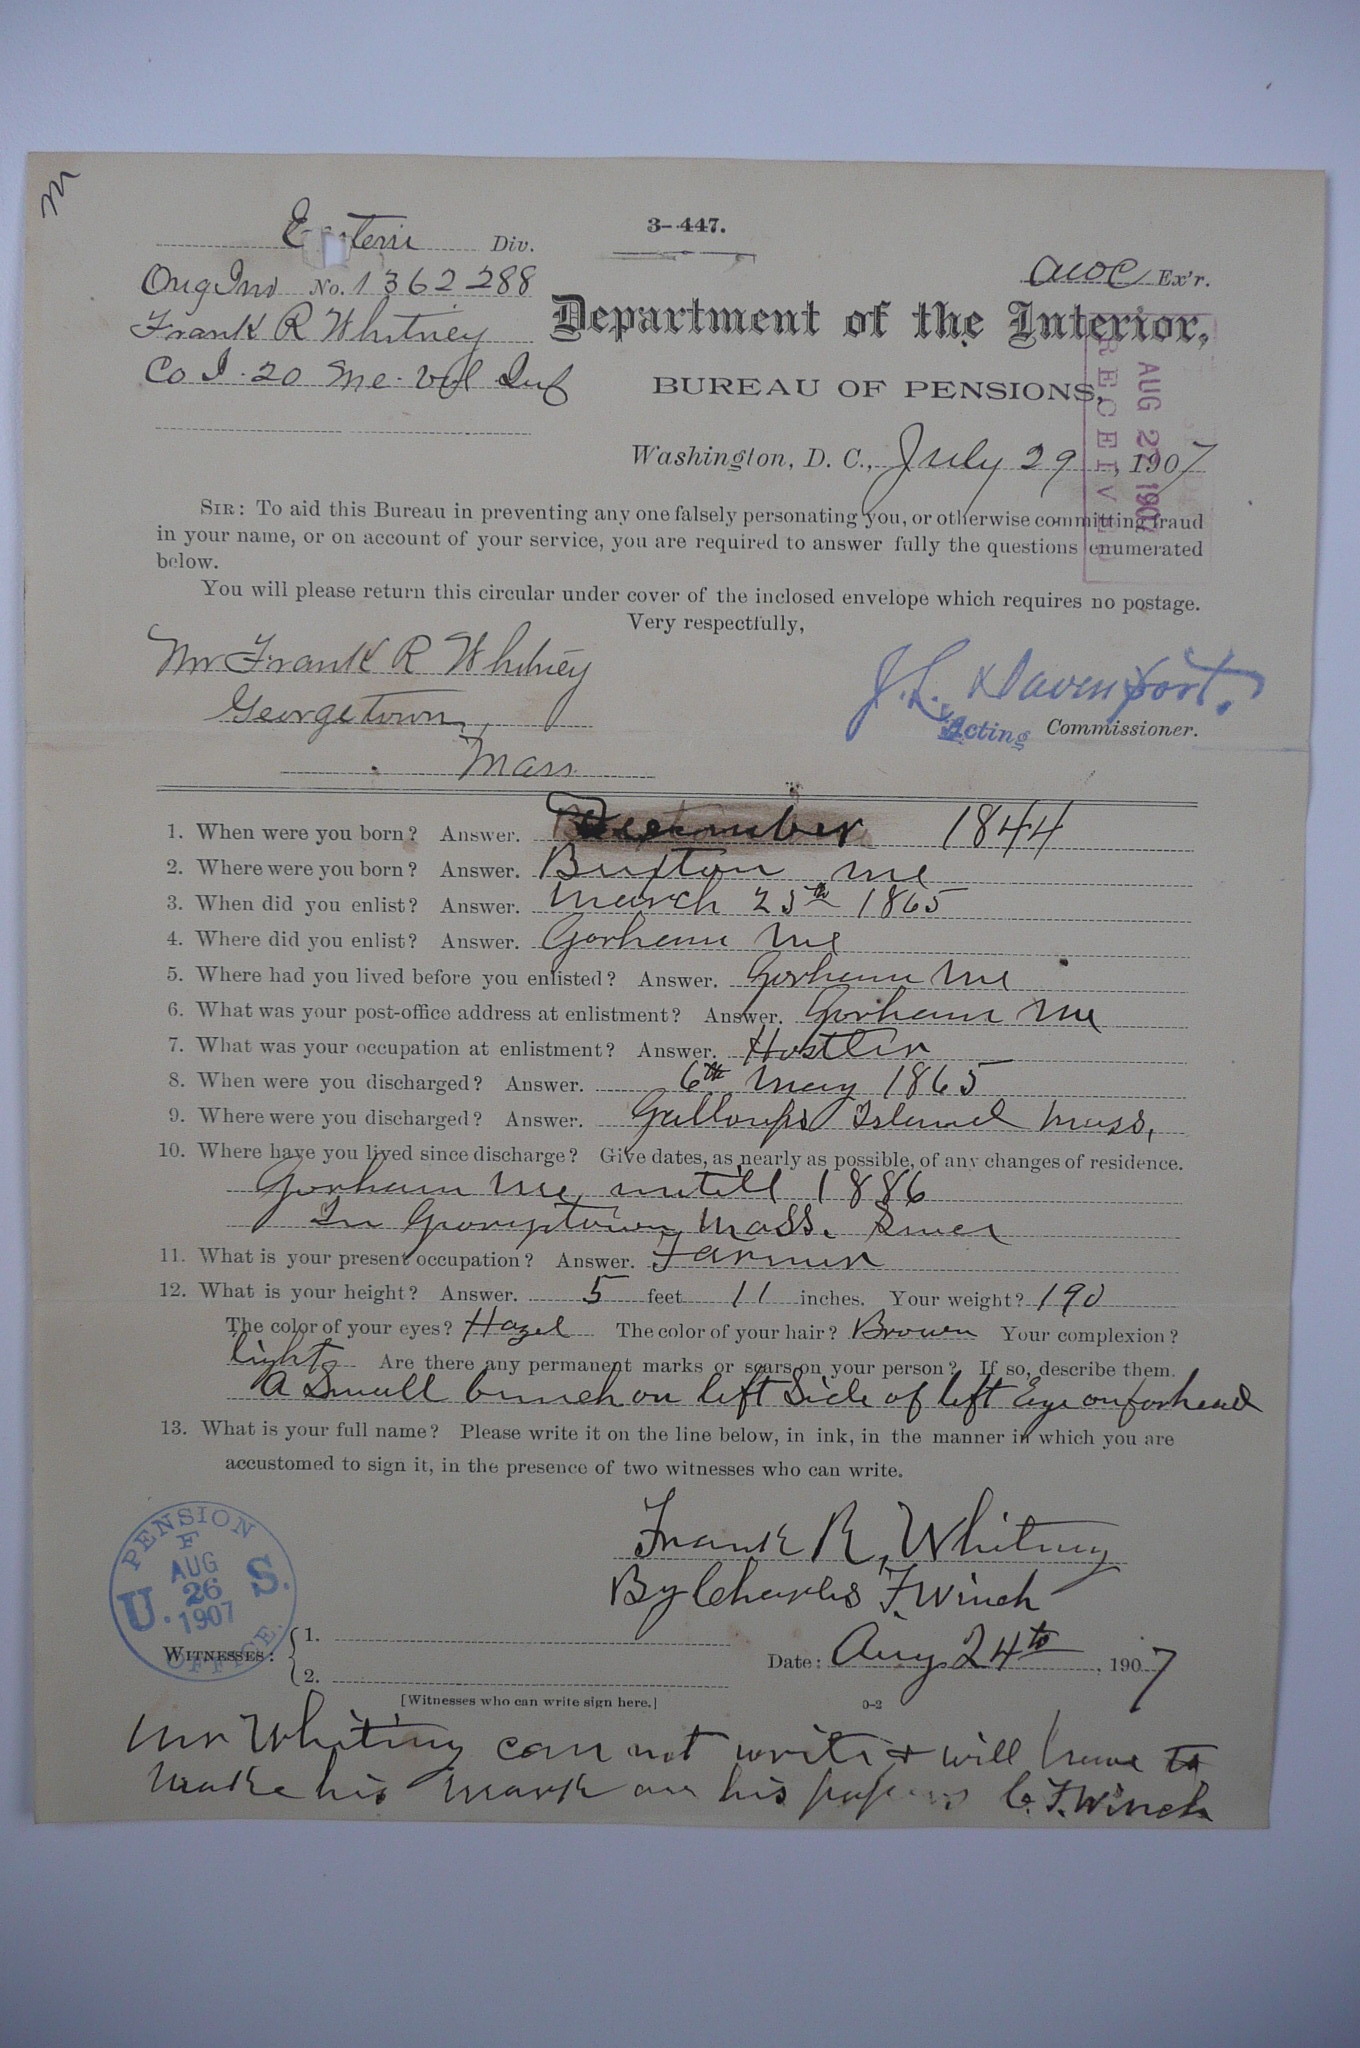 M
3-447.
Eastern Div.
Orig Inv No. 1362288
Frank R Whitney
Co I. 20 Me. Vol Inf
Ex'r.
Department of the Interior,
BUREAU OF PENSIONS,
RECEIVED
AUG 27 1907
Washington, D. C., July 29, 1907
SIR: To aid this Bureau in preventing any one falsely personating you, or otherwise committing fraud
in your name, or on account of your service, you are required to answer fully the questions enumerated
below.
You will please return this circular under cover of the inclosed envelope which requires no postage.
Very respectfully,
Mr Frank R Whitney
Georgetown,
Mass
J. L. Davenport.
Acting Commissioner.
1. When were you born? Answer. December 1844
2. Where were you born? Answer. Buxton Me
3. When did you enlist? Answer. March 25th 1865
4. Where did you enlist? Answer. Gorham Me
5. Where had you lived before you enlisted? Answer. Gorham Me
6. What was your post-office address at enlistment? Answer. Gorham Me
7. What was your occupation at enlistment? Answer. Hostler
8. When were you discharged? Answer. 6th May 1865
9. Where were you discharged? Answer. Galloups Island Mass,
10. Where have you lived since discharge? Give dates, as nearly as possible, of any changes of residence.
Gorham Me, untill 1886
In Georgetown, Mass. Since
11. What is your present occupation? Answer. Farmer
12. What is your height? Answer. 5 feet 11 inches. Your weight? 190
The color of your eyes? Hazel The color of your hair? Brown Your complexion?
light Are there any permanent marks or scars on your person? If so, describe them.
A Small bunch on left Side of left Eye on forhead
13. What is your full name? Please write it on the line below, in ink, in the manner in which you are
accustomed to sign it, in the presence of two witnesses who can write.
Frank R, Whitney
By Charles F. Winch
PENSION OFFICE
U. S.
F
AUG
26
1907
WITNESSES: 1.
2.
[Witnesses who can write sign here.]
Date: Aug 24th, 1907
0-2
Mr Whitney can not write & will have to
make his mark on his papers C. F. Winch